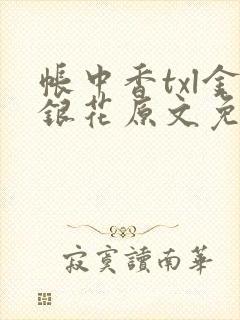 帳中香txl金
銀花原文免
寂寞讀南華